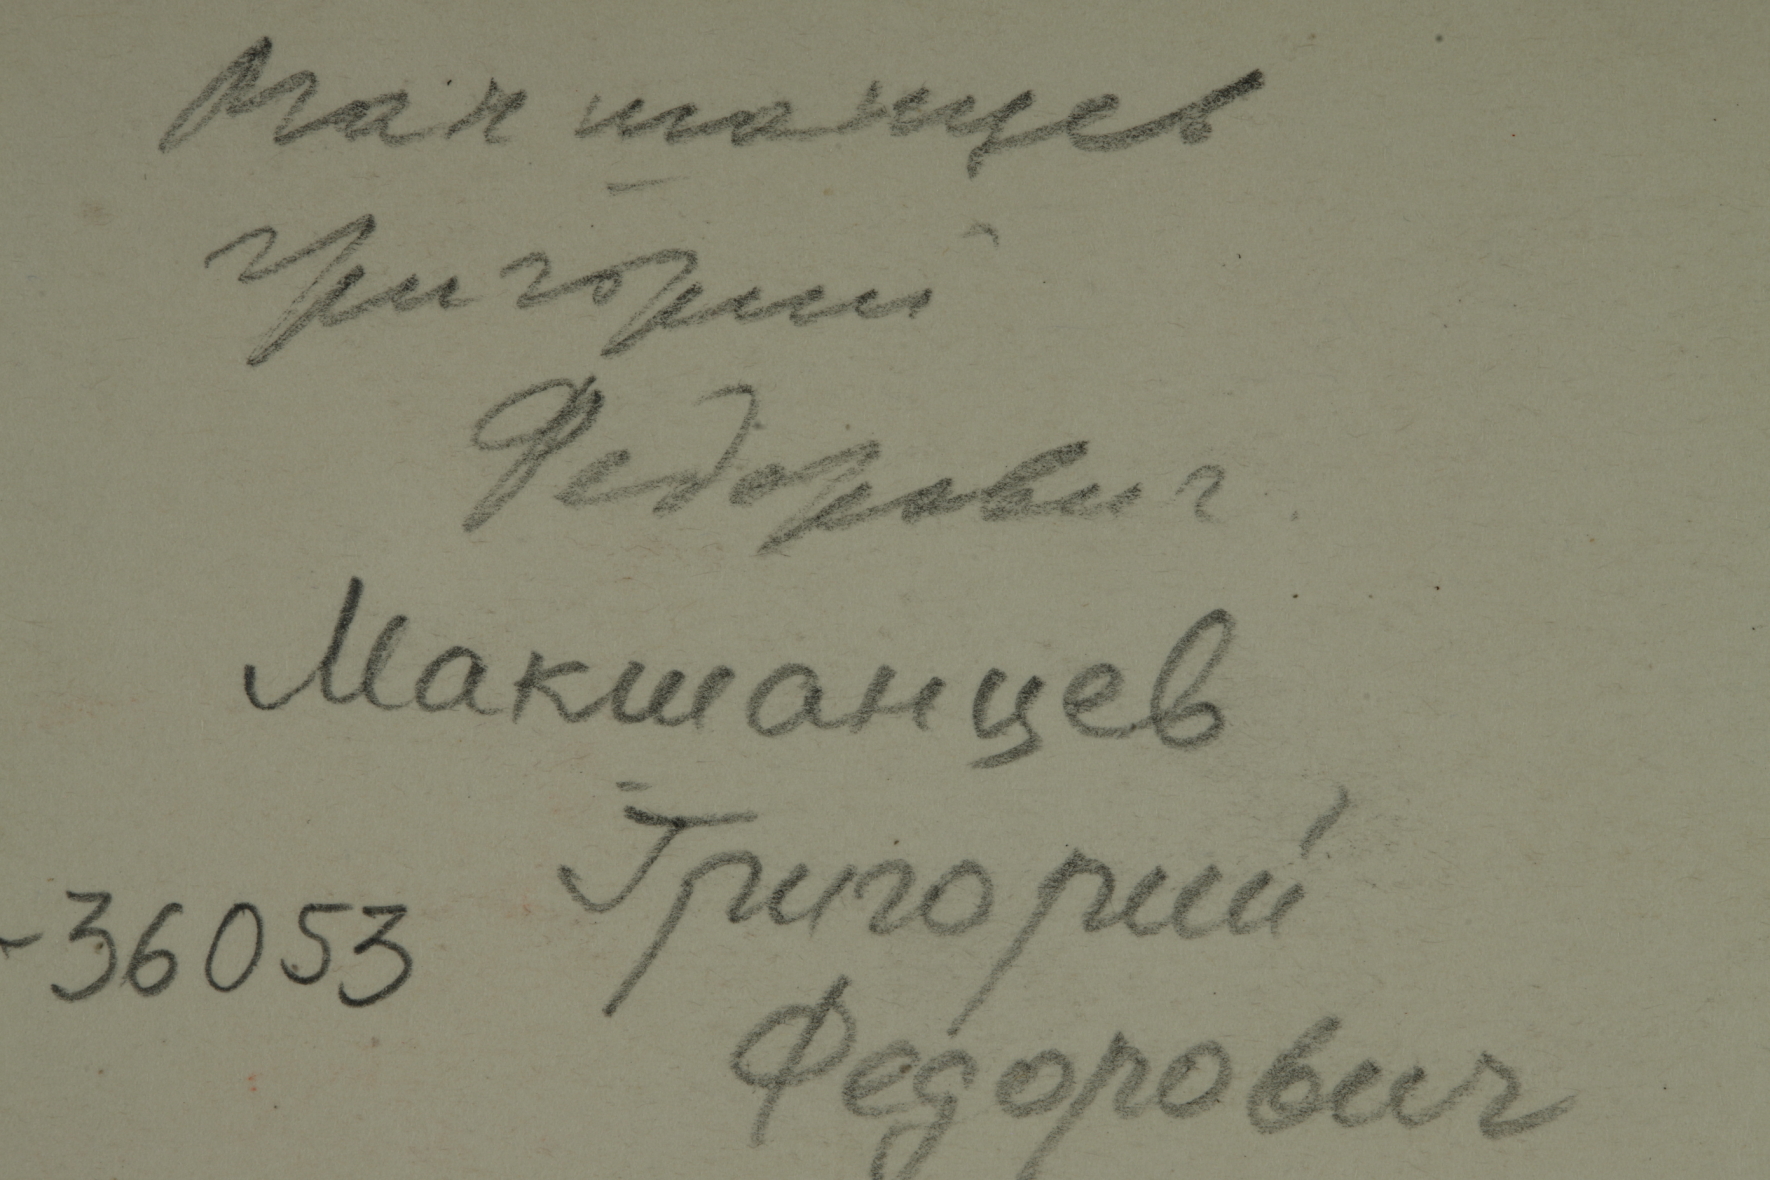 Макшанцев
Григорий
Федорович
Макшанцев
Григорий
-36053
Федорович